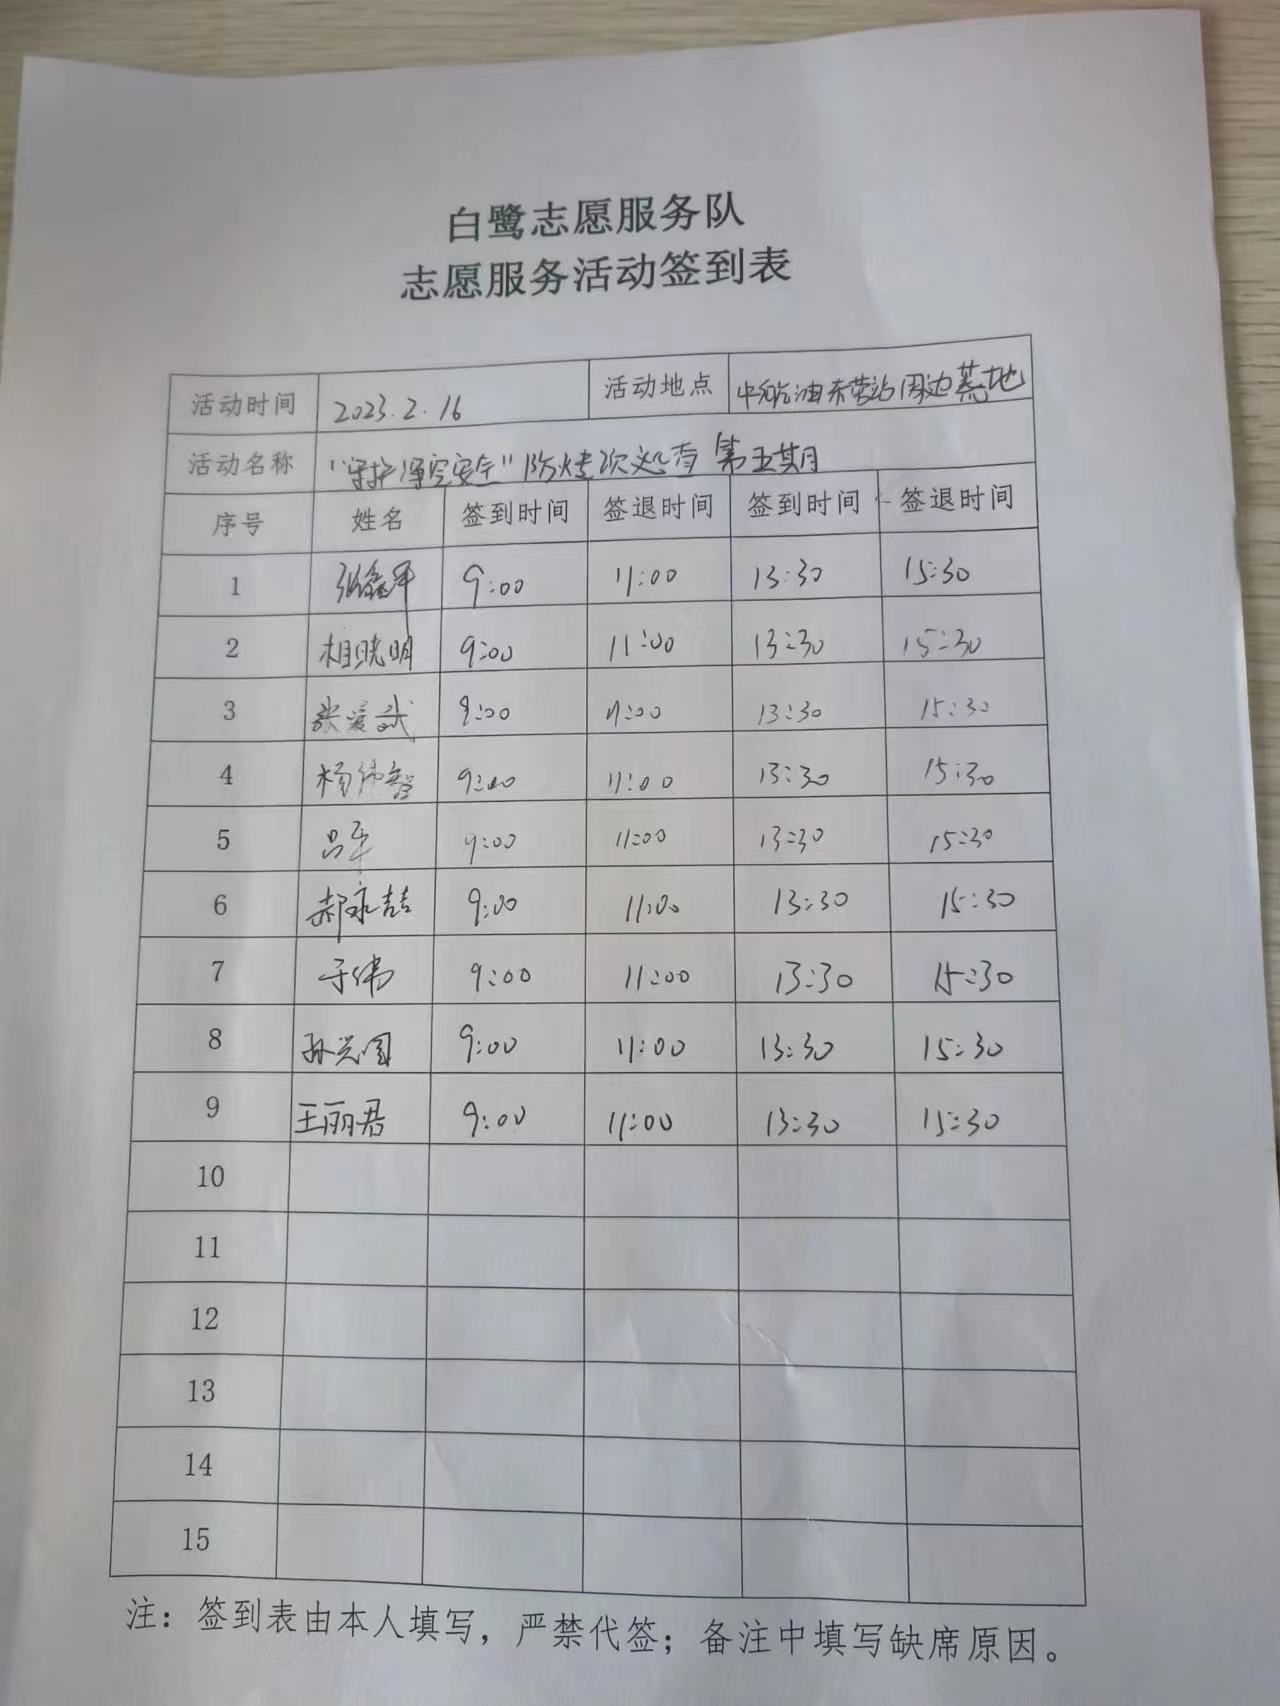 白鹭志愿服务队
志愿服务活动签到表
活动时间 2023.2.16 活动地点 中航油东营站周边荒地
活动名称 "守护净空安全"防烧 第五期
序号 姓名 签到时间 签退时间 签到时间 签退时间
1 张鑫军 9:00 11:00 13:30 15:30
2 相晓明 9:00 11:00 13:30 15:30
3 张爱武 9:00 11:00 13:30 15:30
4 杨伟智 9:00 11:00 13:30 15:30
5 吕军 9:00 11:00 13:30 15:30
6 郝永喆 9:00 11:00 13:30 15:30
7 于伟 9:00 11:00 13:30 15:30
8 孙兴国 9:00 11:00 13:30 15:30
9 王丽君 9:00 11:00 13:30 15:30
10
11
12
13
14
15
注：签到表由本人填写，严禁代签；备注中填写缺席原因。